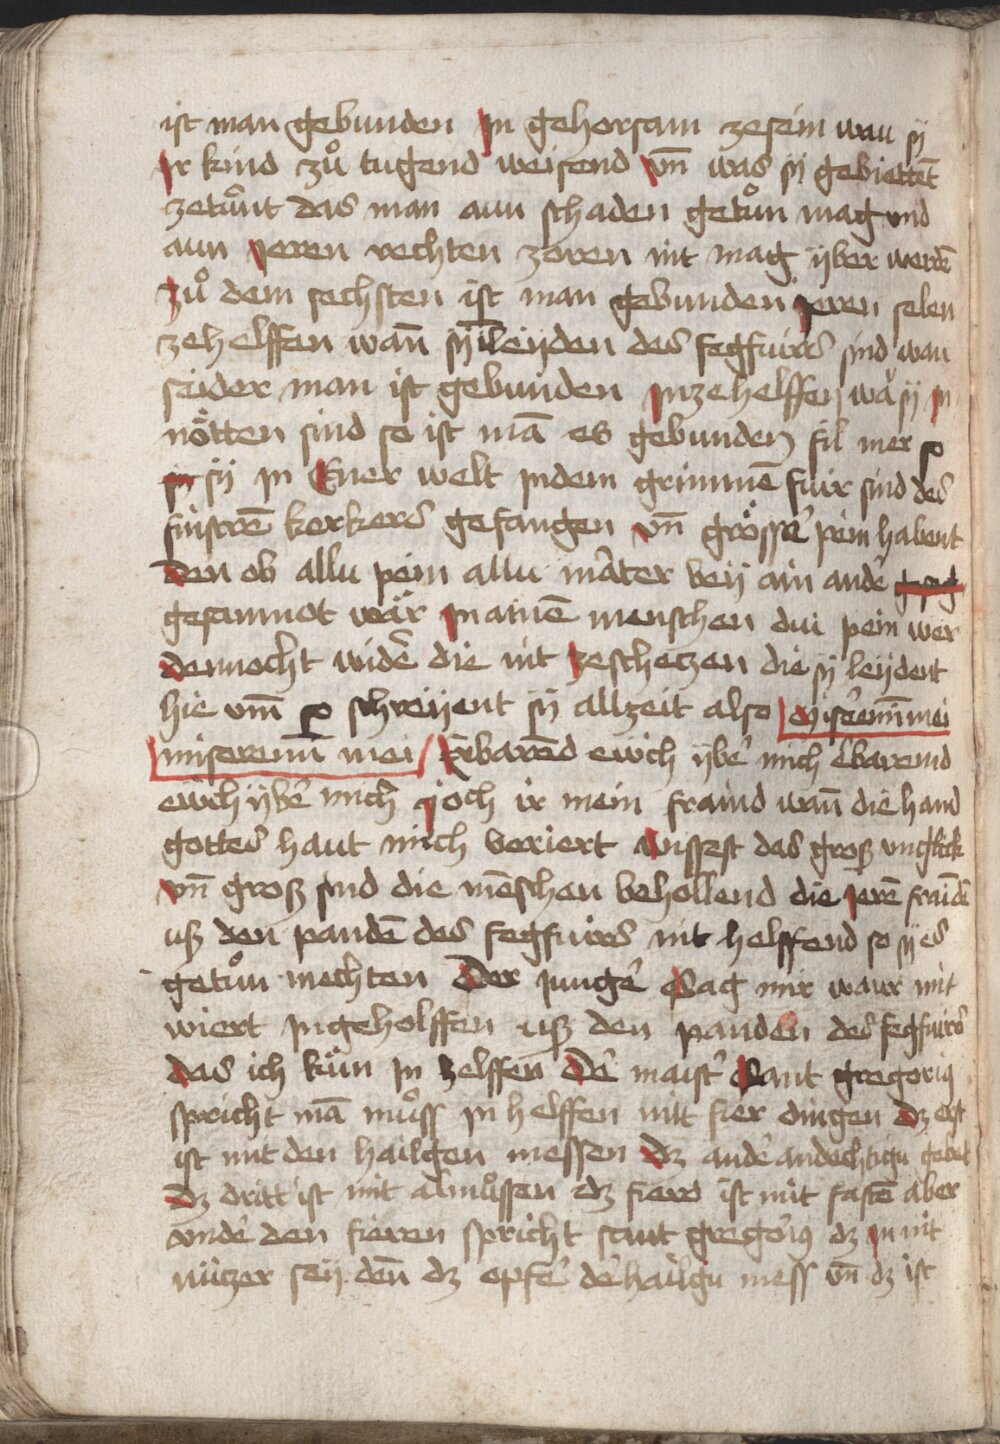 ist man gebunden In gehorsam zesein wan sÿ
Ir kind zuͦ tugend weisend vn̄ was sÿ gebiettēt
zetuͦnt das man aun schaden getuͦn mag vnd
aun Jeren rechten zoren nit mag ÿber werdē
Zuͦ dem sechsten ist man gebunden Jeren selen
zehelffen wan̄ sÿ Jleÿden des fegfuirs sind wan
seider man ist gebunden Inzehelffen wā sÿ In
nöͤtten sind so ist mā es gebunden fil mer so
sÿ In Ener welt Indem grimmē fuir sind des
finstrē kerkers gefangen vn̄ grösse͛ pein habent
Den ob allu pein allu mȧter beÿ ain ande͛
gesamnot wär In ainē menschen dui pein wer
dennocht wide͛ die nit zeschetzen die sÿ leÿdent
hie vm̄ so schreÿent sÿ allzeit also Mise͛emīmei
miseremī mei Erbarēd ewch ÿbe͛ mich e͛baremd
ewch ÿbe͛ mich Joch ir mein fraind wan̄ die hand
gottes haut mich beriert Aussest das groß vnglick
vn̄ groß sind die mēschen behollend die Jerē fraīdē
uß den pandē des fegfuirs nit helffend so sÿ es
getuͦn mechten Der Junge͛ Sag mir waur mit
wiert Ingeholffen uß den panden des fegfuirs
das ich kün In helffen De͛ maist͛ Sant gregoriꝰ
spricht mā muͦss In helffen mit fier dingen Dz erst
ist mit den hailgen messen Dz ande͛ andechtigu gebet
Dz dritt ist mit almuͦssen dz fierd ist mit fastē aber
vnde͛ den fieren spricht sant grego͛iꝰ dz In nit
nützer seÿ den̄ dz opfe͛ de͛ hailgu mess vn̄ dz ist